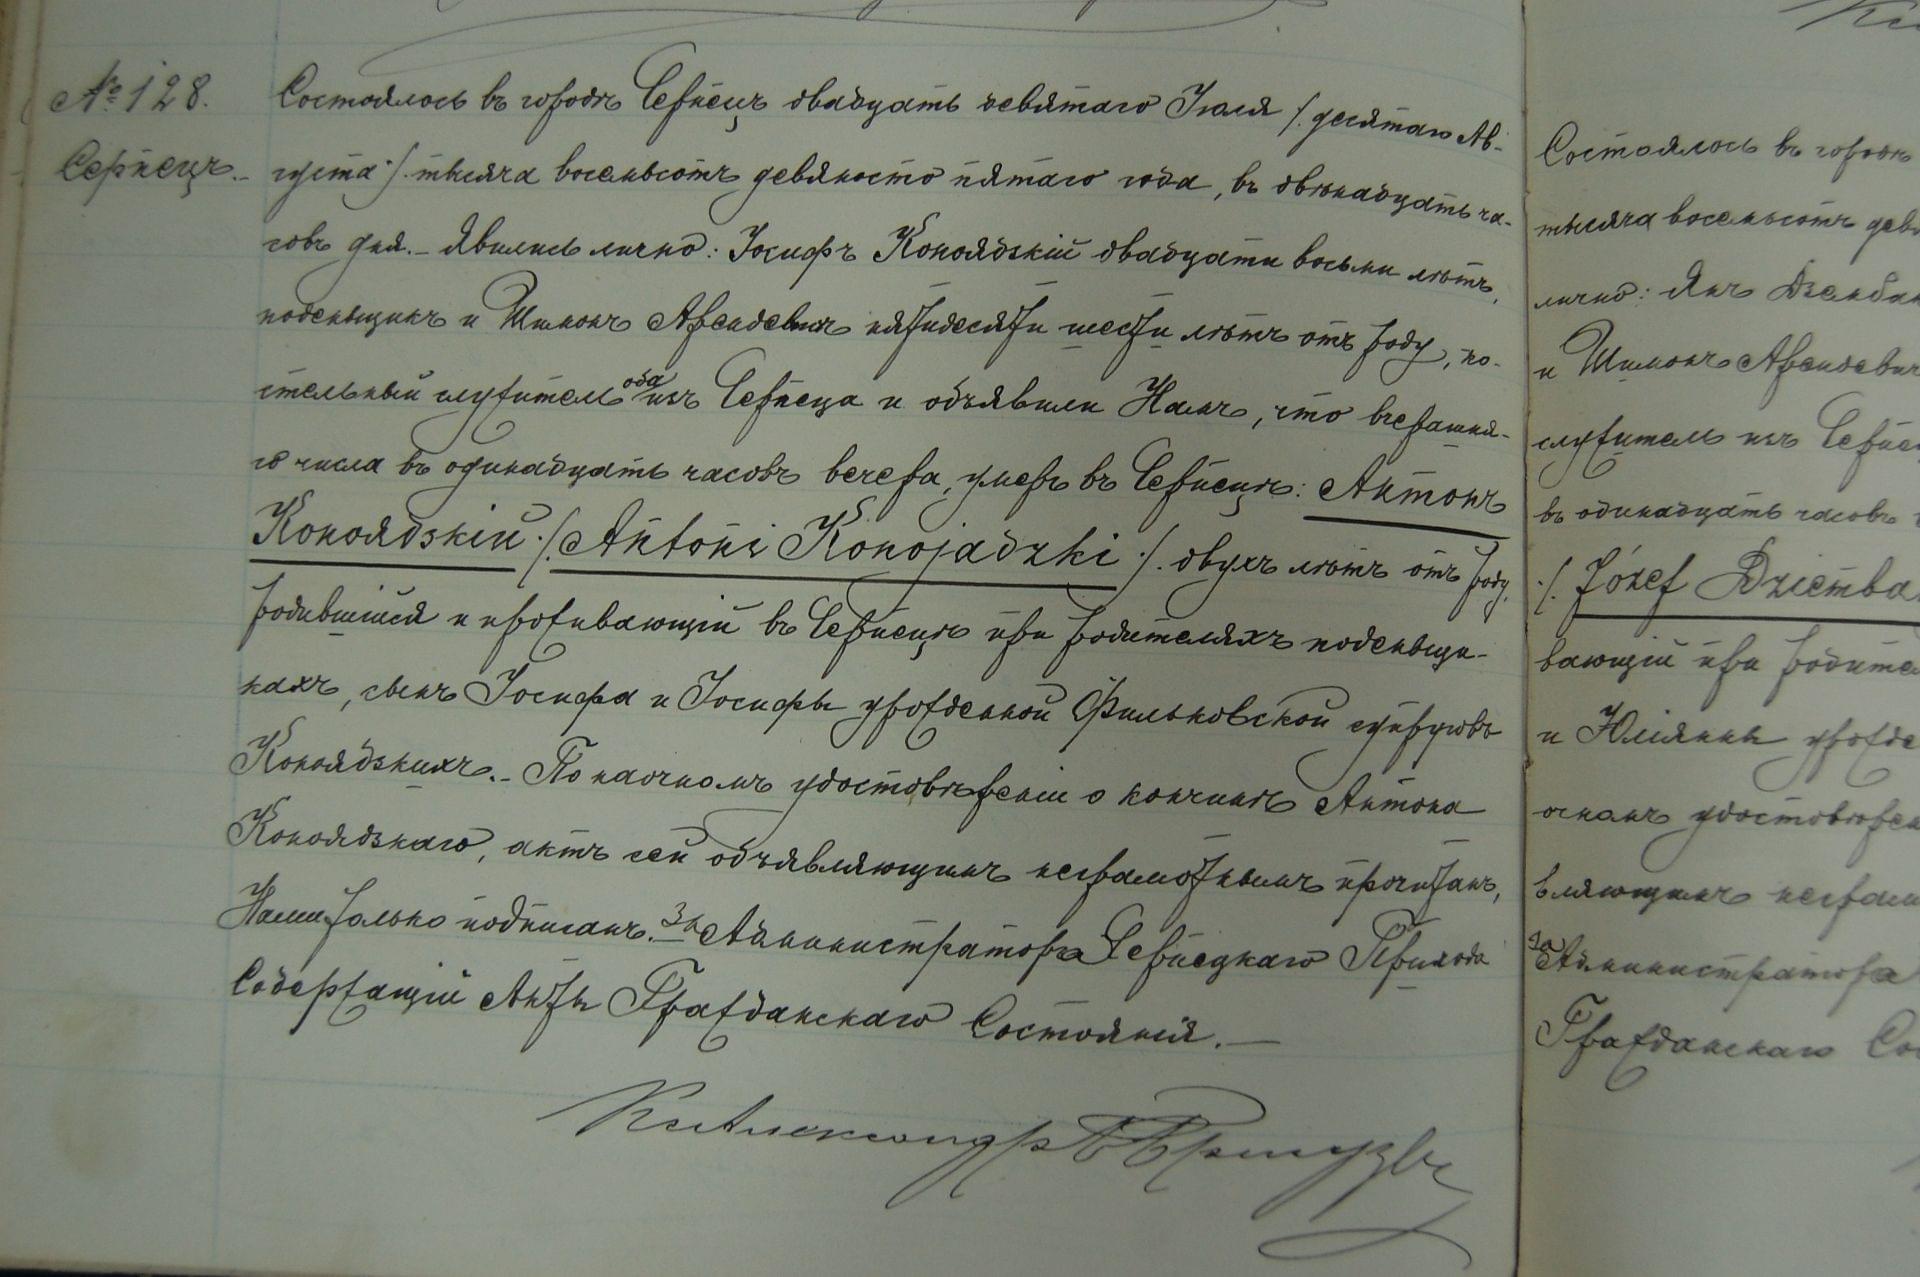 № 128.
Серпецъ.
Состоялось въ городѣ Серпецъ двадцать девятаго Іюля /. десятаго Ав-
густа ./ тысяча восемьсотъ девяносто пятаго года, въ двѣнадцать ча-
совъ дня. – Явились лично: Іосифъ Коноядзкій двадцати восьми лѣтъ,
поденьщикъ и Шимонъ Арендевичъ пятидесяти шести лѣтъ отъ роду, ко-
стельный служитель оба изъ Серпеца и объявили Намъ, что вчерашня-
го числа въ одинадцать часовъ вечера, умеръ въ Серпецѣ: Антонъ
Коноядзкій ./. Antoni Konojadzki ./. двухъ лѣтъ отъ роду,
родившійся и проживающій въ Серпецѣ при родителяхъ поденьщи-
кахъ, сынъ Іосифа и Іосифы урожденной Фильковской супруговъ
Коноядзкихъ. – По наочномъ удостовѣреніи о кончинѣ Антона
Коноядзкаго, актъ сей объявляющимъ неграмотнымъ прочитанъ,
Нами только подписанъ. За Администратора Серпецкаго Прихода
Содержащій Акты Гражданскаго Состоянія. –
Состоялось въ городѣ
тысяча восемьсотъ девя
лично: Янъ
и Шимонъ Арендевичъ
служитель изъ Серпец
въ одинадцать часовъ
./. Józef
вающій при родите
и Юліянны урожде
очномъ удостовѣрен
вляющимъ неграм
За Администратора
Гражданскаго Со